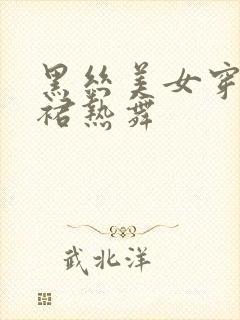 黑丝美女穿
裙热舞
武北洋